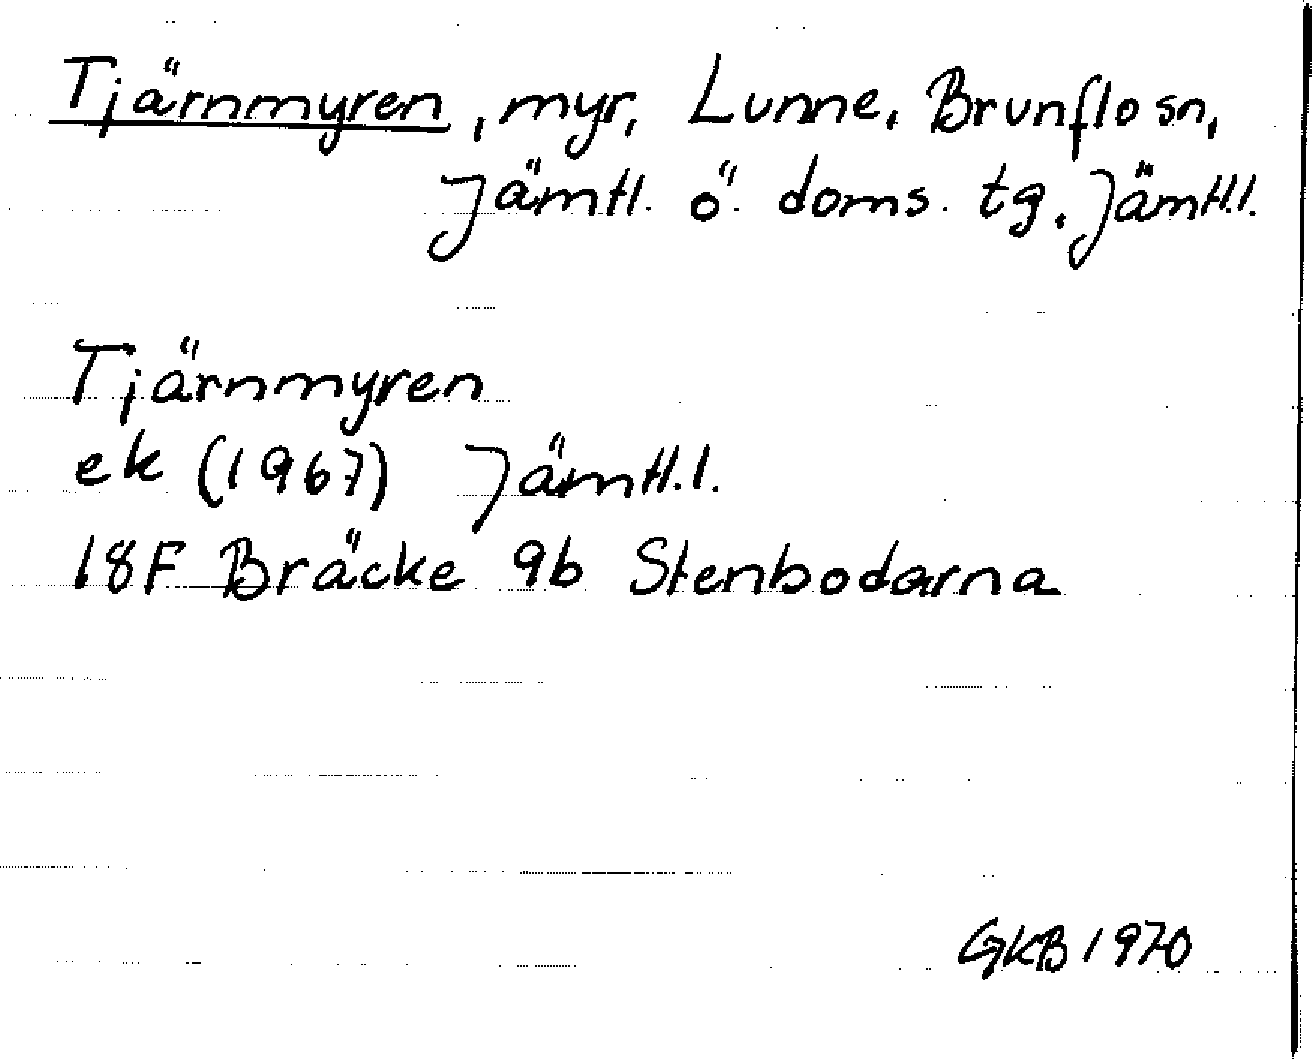 Tjärnmyren, myr, Lunne, Brunflo sn,
Jämtl. ö. doms. tg. Jämtl.l.
Tjärnmyren
ek (1967) Jämtl.l.
18F Bräcke 9b Stenbodarna
GKB 1970